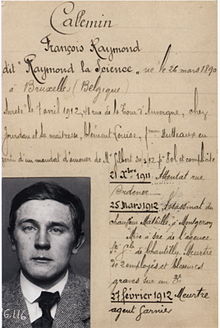 Callemin
François Raymond
dit "Raymond la Science", né le 26 mars 1890
à Bruxelles (Belgique)
Arrêté le 7 avril 1912, 48 rue de la Tour d'Auvergne, chez
Jourdan et sa maîtresse, Clément Louise, femme
en d'un mandat d'amener de Mr Gilbert du Vol et complicité
21 Xbre 1911 Attentat rue
Ordener
25 Mars 1912 Assassinat du
chauffeur Mathillé, à Montgeron
Mise à sac de l'agence
Sté Gle de Chantilly. Meurtre
de 2 employés et blessures
graves sur un 3e
27 février 1912 Meurtre
agent Garnier